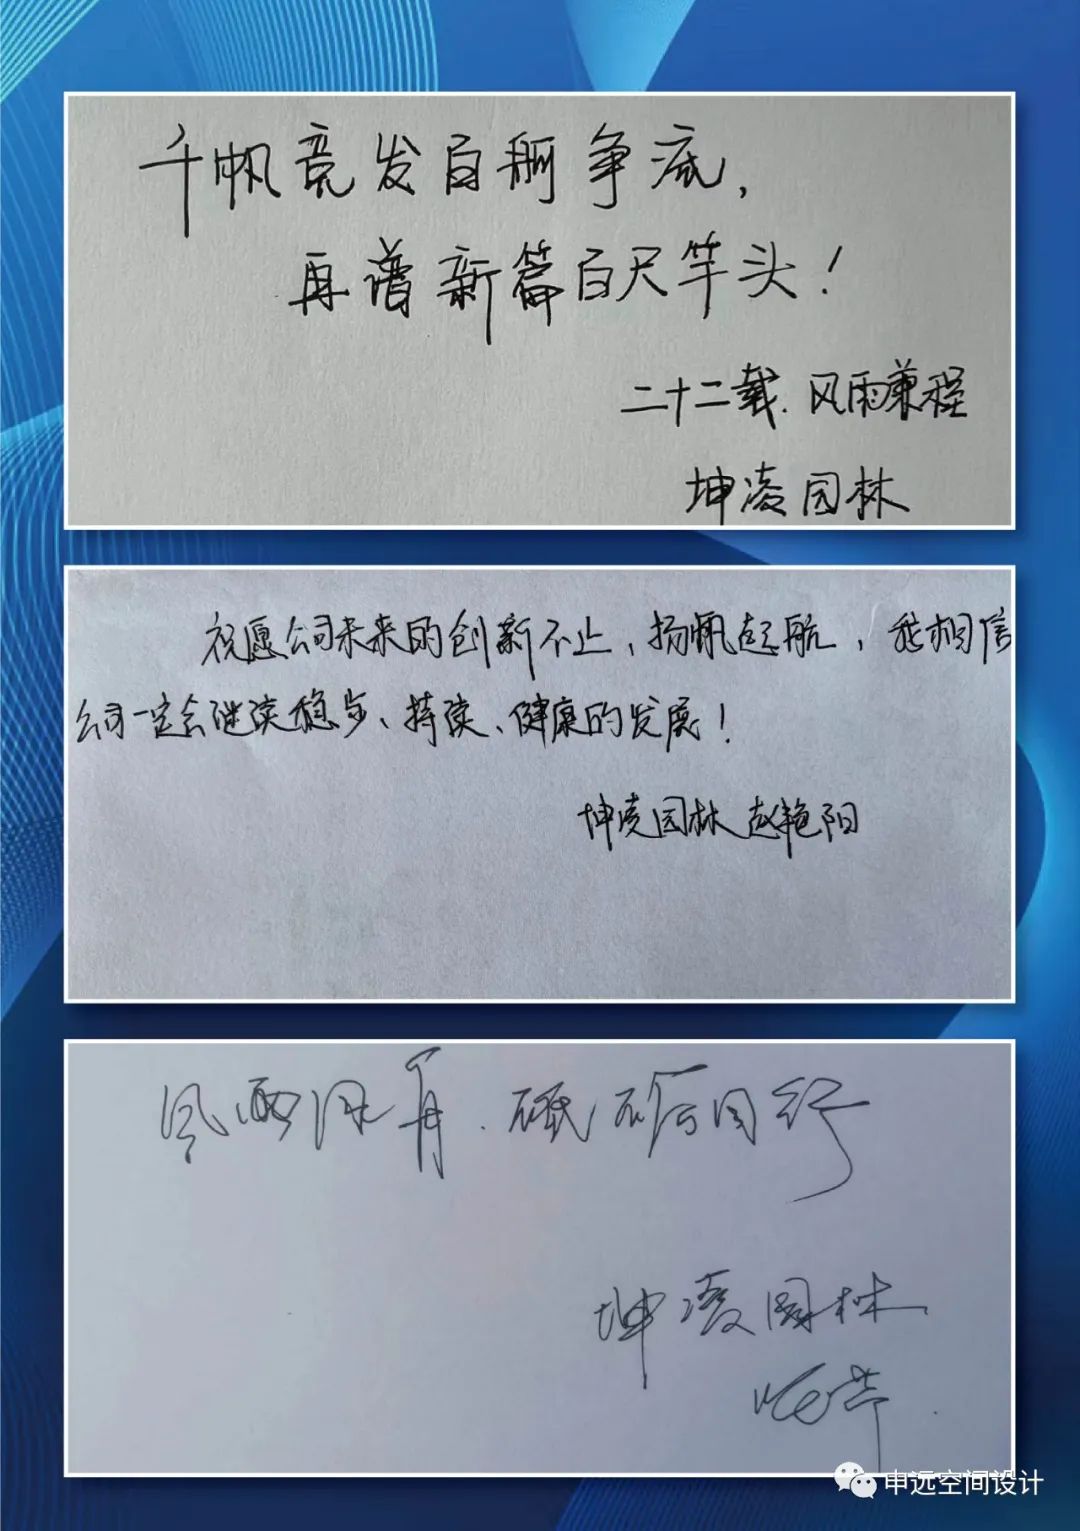 千帆竞发百舸争流,
再谱新篇百尺竿头!
二十二载.风雨兼程
坤凌园林
祝愿公司未来的创新不止,扬帆起航,我相信
公司一定会继续稳步、持续、健康的发展!
坤凌园林 赵艳阳
风雨同舟.砥砺同行
坤凌园林
申远空间设计